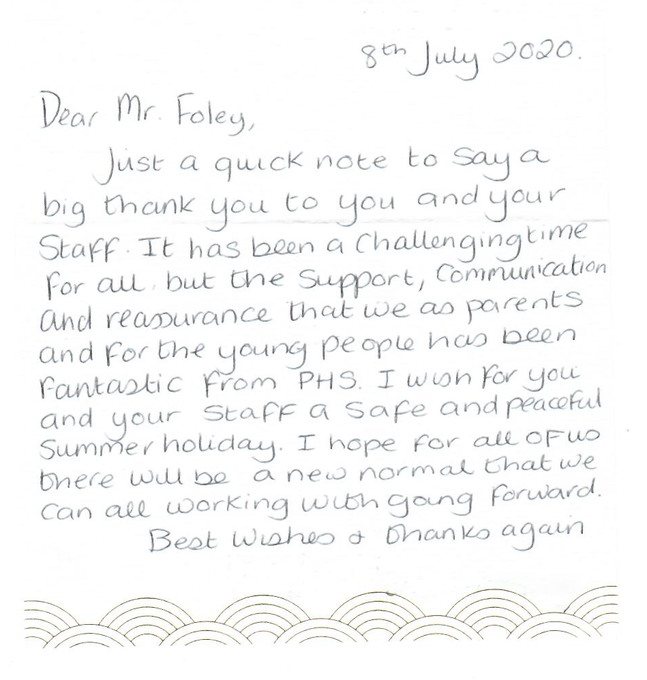 8th July 2020.
Dear Mr. Foley,
Just a quick note to say a
big thank you to you and your
Staff. It has been a challenging time
for all, but the support, communication
and reassurance that we as parents
and for the young people has been
fantastic from PHS. I wish for you
and your staff a safe and peaceful
Summer holiday. I hope for all of us
there will be a new normal that we
can all working with going forward.
Best Wishes & thanks again